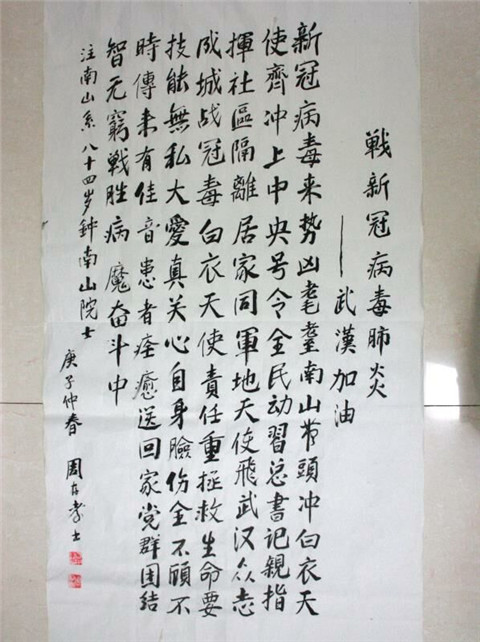 戰新冠病毒肺炎
——武漢加油
新冠病毒来势凶耄耋南山带頭冲白衣天
使齊冲上中央号令全民动習总書记親指
揮社區隔離居家同軍地天使飛武汉众志
成城战冠毒白衣天使責任重拯救生命要
技能無私大愛真关心自身臉伤全不顾不
時傳来有佳音患者痊癒送回家党群团结
智无窮戰胜病魔奋斗中
注南山系八十四岁鈡南山院士
庚子仲春 周存孝书